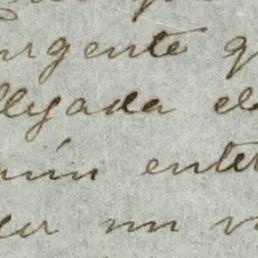 urgente q
llegada el
ún enter
er un v